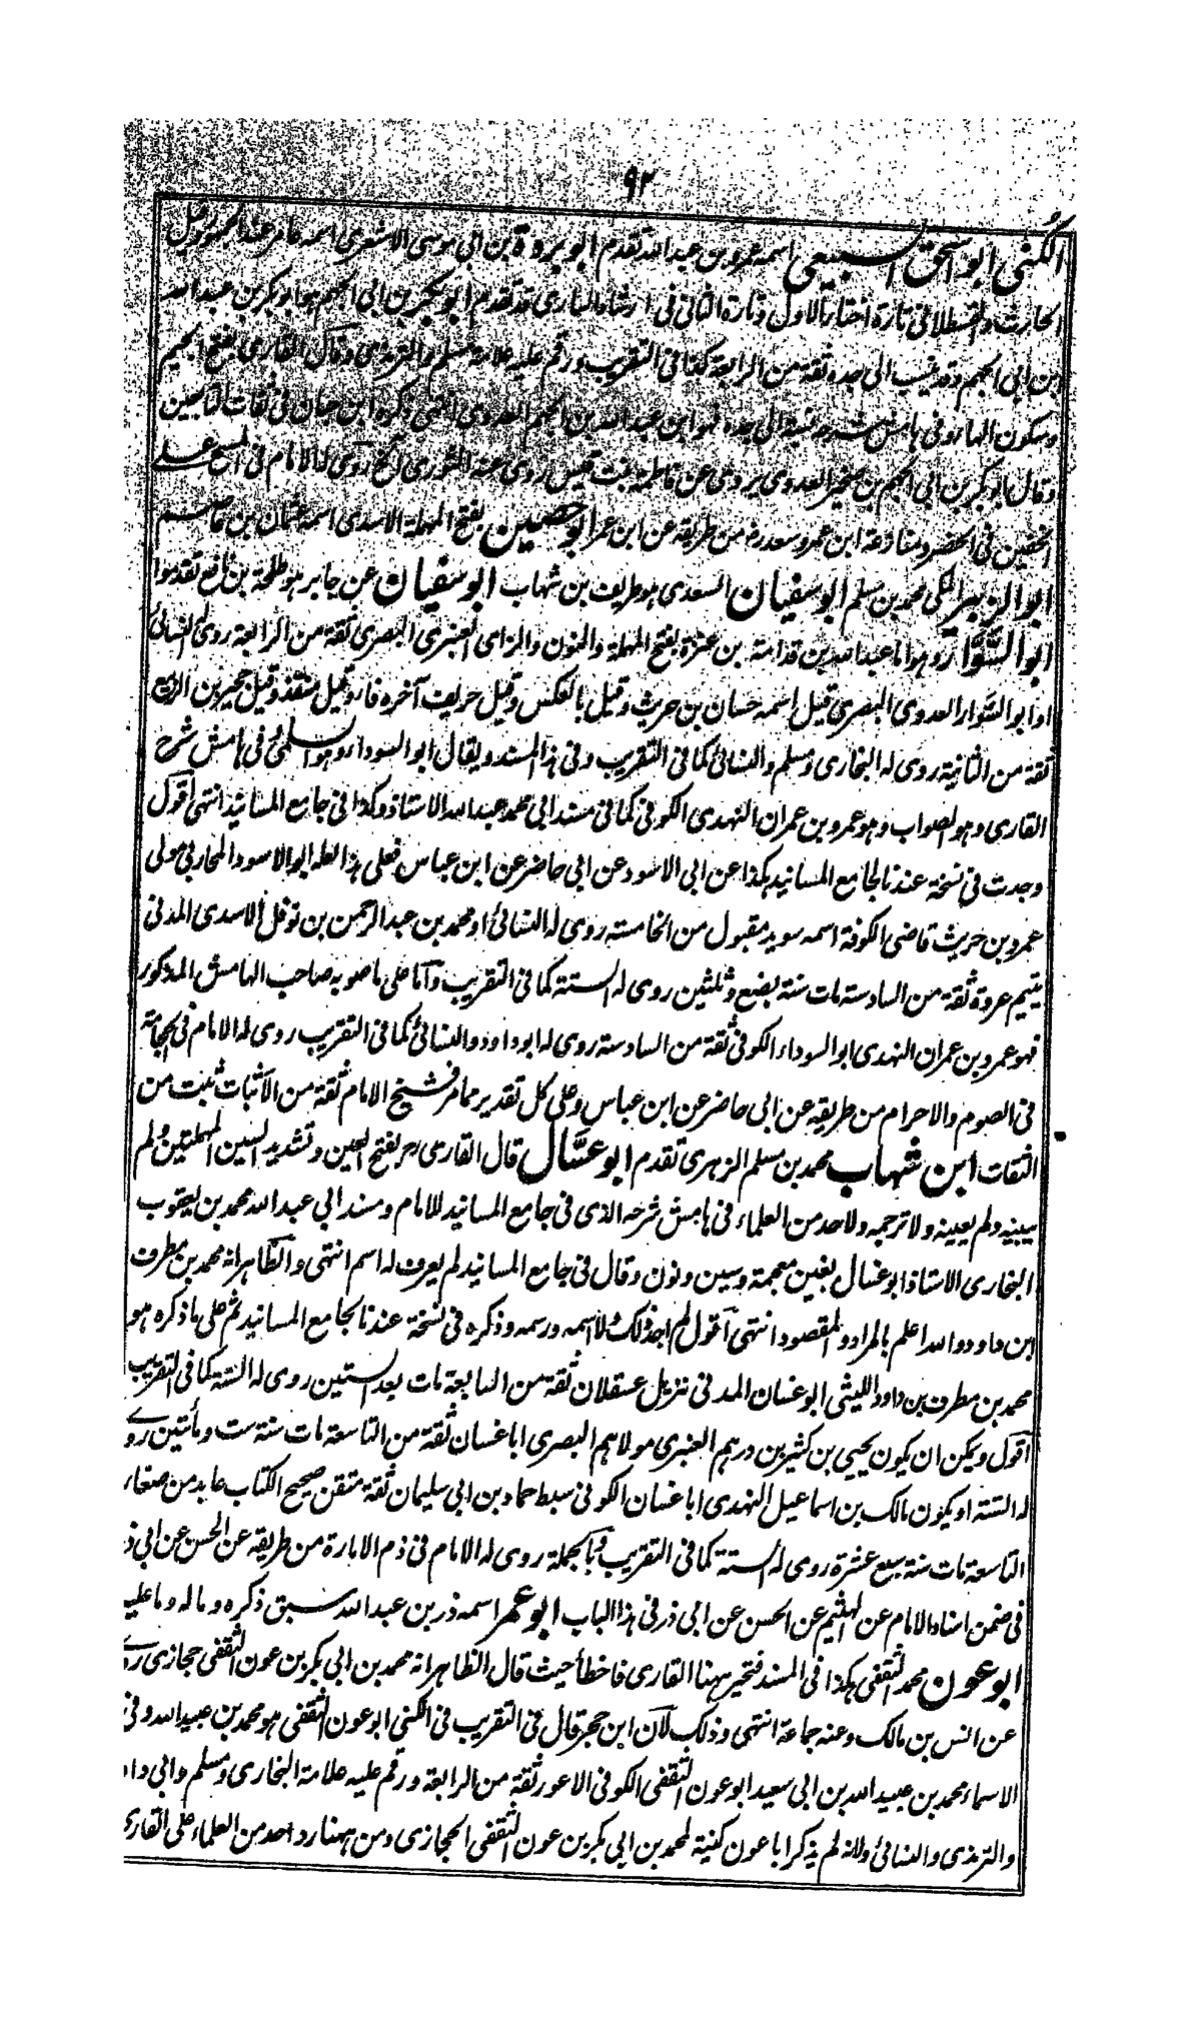 ٩٢
الكُنى ابو اسحق السبيعي اسمه عمرو بن عبد الله تقدم ابو بردة بن ابي موسى الاشعري اسمه عامر عند الجمهور وقيل
الحارث والقسطلاني تارة اختار الاول وتارة الثاني في ارشاد الساري قد تقدم ابو بكر بن ابي الجهم هو ابو بكر بن عبد الله
ابن ابي الجهم وقد ينسب الى جده ثقة من الرابعة كذا في التقريب ورقم عليه علامة مسلم والترمذي وقال القاري بفتح الجيم
وسكون الهاء وفي هامش شرحه نسبة الى جده فهو ابن عبد الله بن الجهم العدوي انتهى ذكره ابن حبان في ثقات التابعين
وقال ابو بكر بن ابي الجهم بن صخير العدوي يروي عن فاطمة بنت قيس روى عنه الثوري الخ روى له الامام في المسح على
الخفين في الحضر ومنازعة ابن عمر وسعد رضـ من طريقه عن ابن عمر ابو حصين بفتح المهملة الاسدي اسمه عثمان بن عاصم
ابو الزبير المكي محمد بن مسلم ابو سفيان السعدي هو طريف بن شهاب ابو سفيان عن جابر هو طلحة بن نافع تقدموا
ابو السَّوَّار وهو اما عبد الله بن قدامة بن عنزة بفتح المهملة والنون والزاي العنبري البصري ثقة من الرابعة روى له النسائي
او ابو السوار العدوي البصري قيل اسمه حسان بن حريث وقيل بالعكس وقيل حريف آخره فاء وقيل منقذ وقيل حجير بن الربيع
ثقة من الثانية روى له البخاري ومسلم والنسائي كما في التقريب وفي هذا المسند ويقال ابو السوداء وهو السلمي في هامش شرح
القاري وهو الصواب وهو عمرو بن عمران النهدي الكوفي كما في مسند ابي محمد عبد الله الاستاذ وكذا في جامع المسانيد انتهى اقول
وجدت في نسخة عندنا لجامع المسانيد هكذا عن ابي الاسود عن ابي حاضر عن ابن عباس فعلى هذا لعله ابو الاسود المحاربي مولى
عمرو بن حريث قاضي الكوفة اسمه سويد مقبول من الخامسة روى له النسائي او محمد بن عبد الرحمن بن نوفل الاسدي المدني
يتيم عروة ثقة من السادسة مات سنة بضع وثلثين روى له الستة كما في التقريب واما على ما صوبه صاحب الهامش المذكور
فهو عمرو بن عمران النهدي ابو السوداء الكوفي ثقة من السادسة روى له ابو داود والنسائي كما في التقريب روى له الامام في الحجامة
في الصوم والاحرام من طريقه عن ابي حاضر عن ابن عباس وعلى كل تقدير مما مر فشيخ الامام ثقة من الاثبات ثبت من
الثقات ابن شهاب محمد بن مسلم الزهري تقدم ابو عسَّال قال القاري هو بفتح العين وتشديد السين المهملتين ولم
يبينه ولم يعينه ولا ترجمه ولاحد من العلماء في هامش شرحه الذي في جامع المسانيد للامام ومسند ابي عبد الله محمد بن يعقوب
البخاري الاستاذ ابو غسال بغين معجمة وسين ونون وقال في جامع المسانيد لم يعرف له اسم انتهى والظاهر انه محمد بن مطرف
ابن داود والله اعلم بالمراد والمقصود انتهى اقول لم اجد ذلك لاسمه ورسمه وذكره في نسخة عندنا لجامع المسانيد ثم على ما ذكره هو
محمد بن مطرف بن داود الليثي ابو غسان المدني نزيل عسقلان ثقة من السابعة مات بعد الستين روى له الستة كما في التقريب
اقول ويمكن ان يكون يحيى بن كثير بن درهم العنبري مولاهم البصري ابا غسان ثقة من التاسعة مات سنة ست ومأتين روى
له الستة او يكون مالك بن اسماعيل النهدي ابا غسان الكوفي سبط حماد بن ابي سليمان ثقة متقن صحيح الكتاب عابد من صغار
التاسعة مات سنة سبع عشرة روى له الستة كما في التقريب فبالجملة روى له الامام في ذم الامارة من طريقه عن الحسن عن ابي ذر
في ضمن اسناد الامام عن الهيثم عن الحسن عن ابي ذر في هذا الباب ابو عمر اسمه ذر بن عبد الله سبق ذكره وماله وما عليه
ابو عون محمد الثقفي هكذا في المسند فتحير ههنا القاري فاخطأ حيث قال الظاهر انه محمد بن ابي بكر بن عون الثقفي حجازي روى
عن انس بن مالك وعنه جماعة انتهى وذلك لان ابن حجر قال في التقريب في الكنى ابو عون الثقفي هو محمد بن عبيد الله وفي
الاسماء محمد بن عبيد الله بن ابي سعيد ابو عون الثقفي الكوفي الاعور ثقة من الرابعة ورقم عليه علامة البخاري ومسلم وابي داؤد
والترمذي والنسائي ولانه لم يذكر ابا عون كنية لمحمد بن ابي بكر بن عون الثقفي الحجازي ومن ههنا رد احد من العلماء على القاري